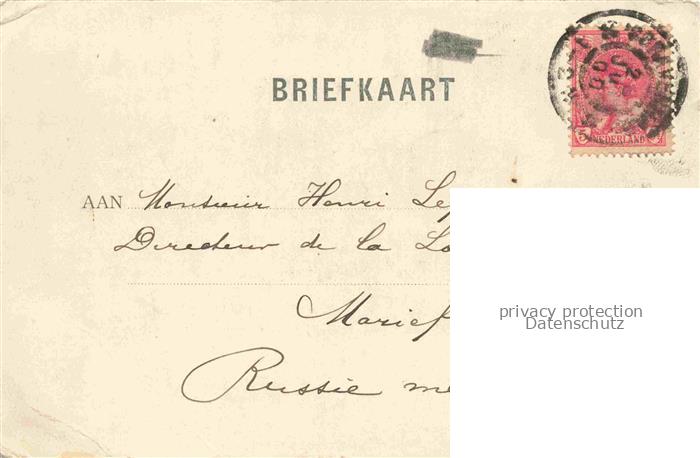 BRIEFKAART
5 NEDERLAND
AAN Monsieur Henri Le
Directeur de la
Marief
Russie me
privacy protection
Datenschutz